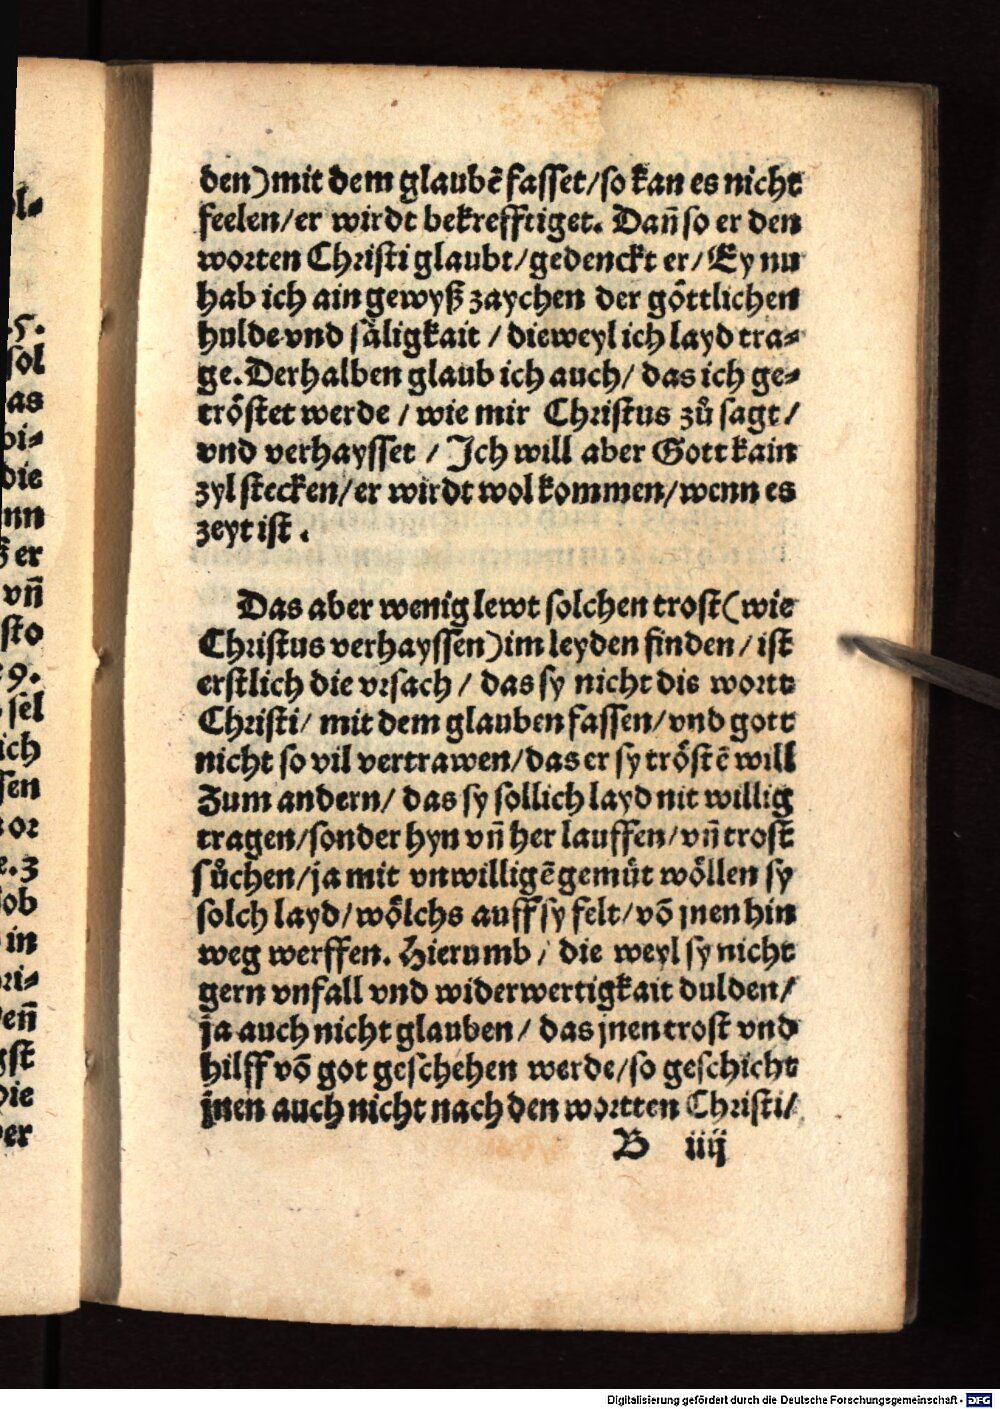 den) mit dem glaubē fasset/ so kan es nicht
feelen/ er wirdt bekrefftiget. Dañ so er den
worten Christi glaubt/ gedenckt er/ Ey nu
hab ich ain gewyß zaychen der göttlichen
hulde vnd säligkait / dieweyl ich layd tra⸗
ge. Derhalben glaub ich auch/ das ich ge⸗
tröstet werde / wie mir Christus zů sagt/
vnd verhaysset / Ich will aber Gott kain
zyl stecken/ er wirdt wol kommen/ wenn es
zeyt ist .
Das aber wenig lewt solchen trost (wie
Christus verhayssen) im leyden finden / ist
erstlich die vrsach / das sy nicht die wortt
Christi/ mit dem glauben fassen/ vnd gott
nicht so vil vertrawen/ das er sy tröstē will
Zum andern/ das sy sollich layd nit willig
tragen/ sonder hyn vñ her lauffen/ vñ trost
sůchen/ ja mit vnwilligē gemüt wöllen sy
solch layd/ wölchs auff sy felt/ võ jnen hin
weg werffen. Hierumb / die weyl sy nicht
gern vnfall vnd widerwertigkait dulden/
ja auch nicht glauben/ das jnen trost vnd
hilff võ got geschehen werde/ so geschicht
jnen auch nicht nach den wortten Christi/
B iiij
l⸗
.5.
sol
as
bi⸗
die
nn
ß er
vñ
sto
9.
sel
ich
sen
or
e. 3
ob
in
ri⸗
eñ
gst
die
er
Digitalisierung gefördert durch die Deutsche Forschungsgemeinschaft - DFG